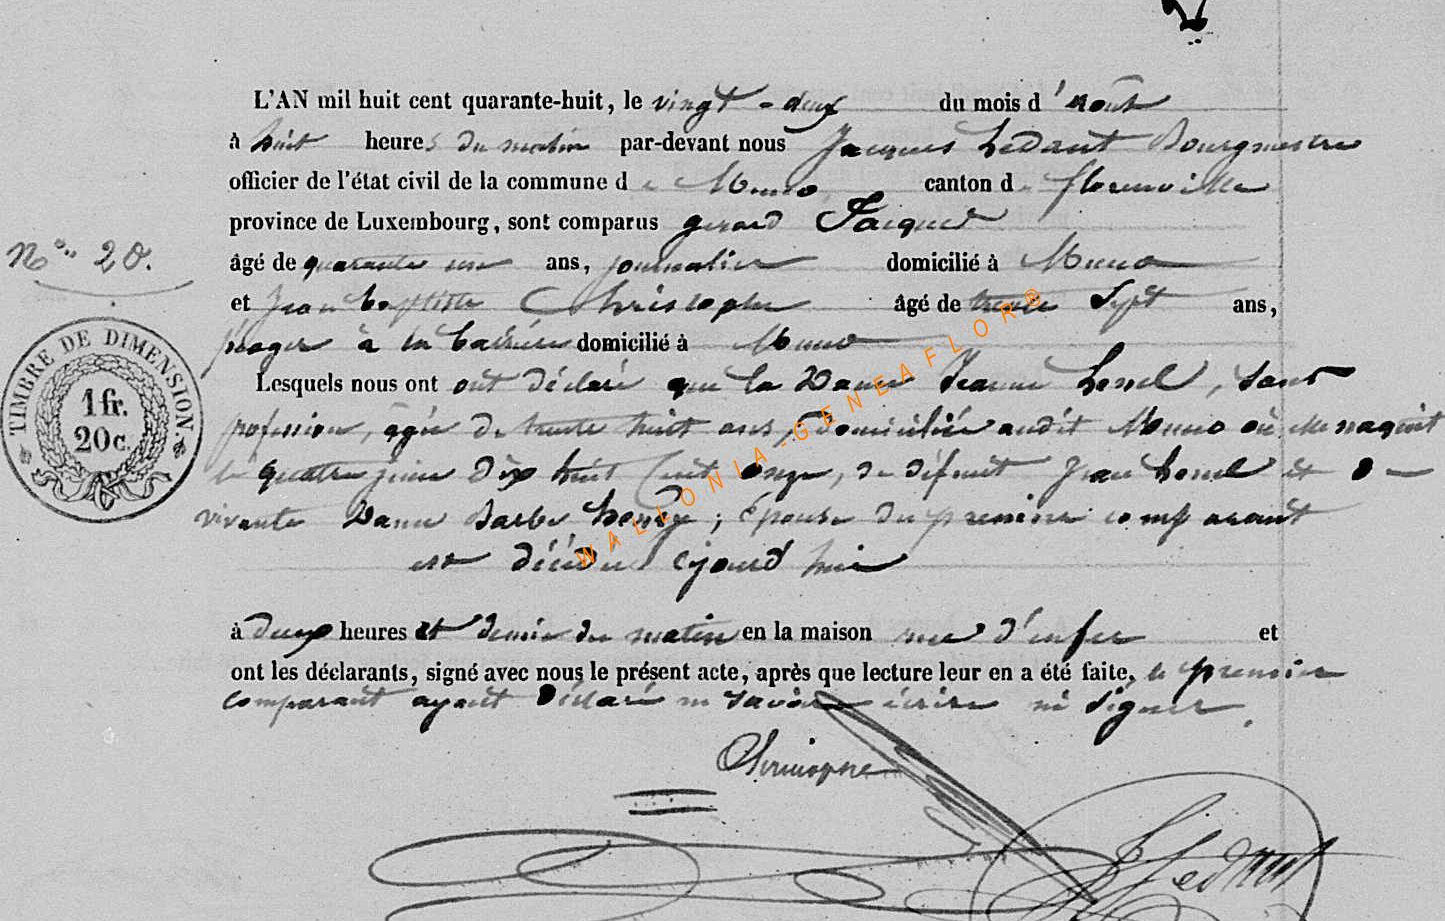 L'AN mil huit cent quarante-huit, le vingt-deux du mois d'Août
à huit heures du matin par-devant nous Jacques Ledant Bourgmestre
officier de l'état civil de la commune de Muno, canton de florenville
province de Luxembourg, sont comparus gerard Jacques
N° 20.
âgé de quarante un ans, journalier domicilié à Muno
et Jean baptiste Christophe âgé de trente sept ans,
péager à la barrière domicilié à Muno
Lesquels nous ont ont déclaré que la Dame Jeanne
sans
profession, agée de trente huit ans, domiciliée audit Muno où elle naquit
le quatre juin dix huit Cent onze, de défunt Jean et de
vivante Dame Barbe Henry; épouse du premier comparant
est décédée cejourd'hui
à deux heures et demie du matin en la maison rue d'enfer et
ont les déclarants, signé avec nous le présent acte, après que lecture leur en a été faite, le premier
comparant ayant déclaré ne savoir écrire ni signer.
TIMBRE DE DIMENSION.
1 fr.
20 c.
WALLONIA-GENEAFLOR®
Christophe
J Ledant